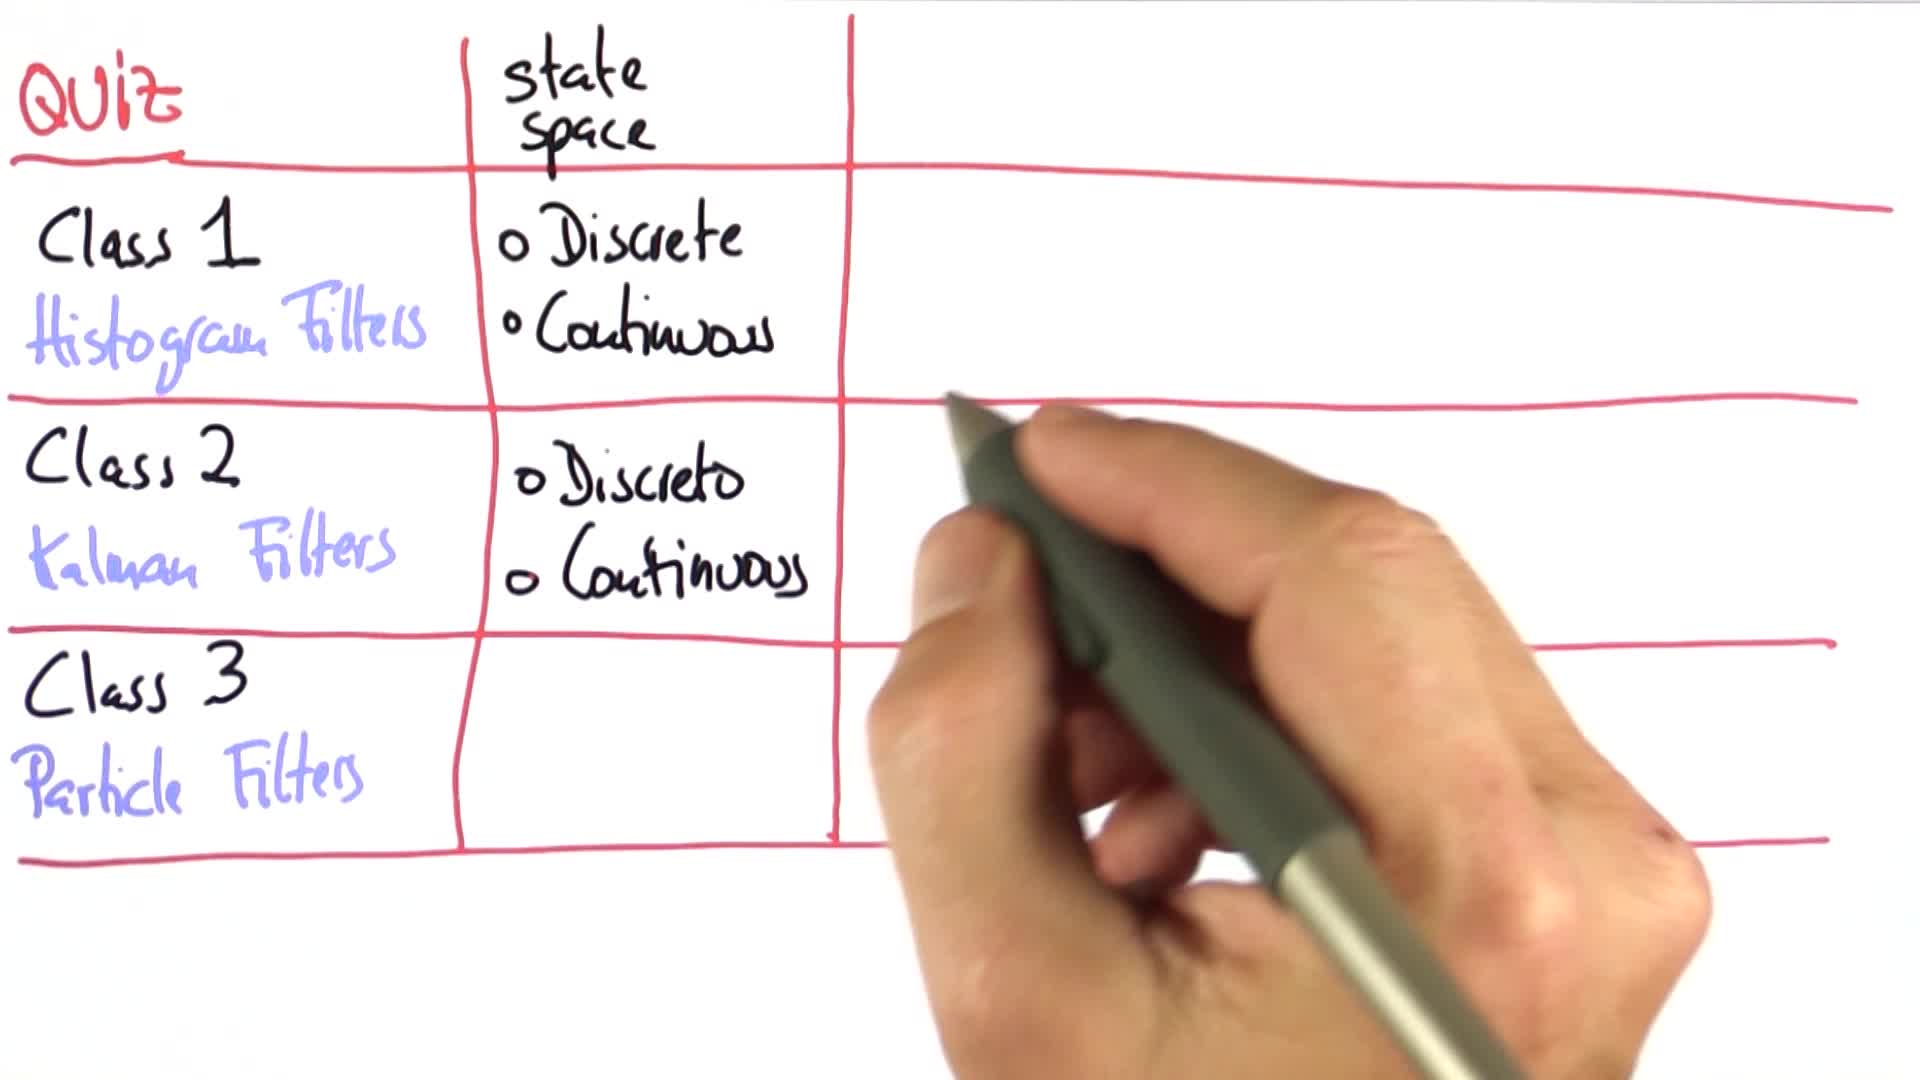 QUiz
state
space
Class 1
Histogram Filters
o Discrete
o Continuous
Class 2
Kalman Filters
o Discrete
o Continuous
Class 3
Particle Filters